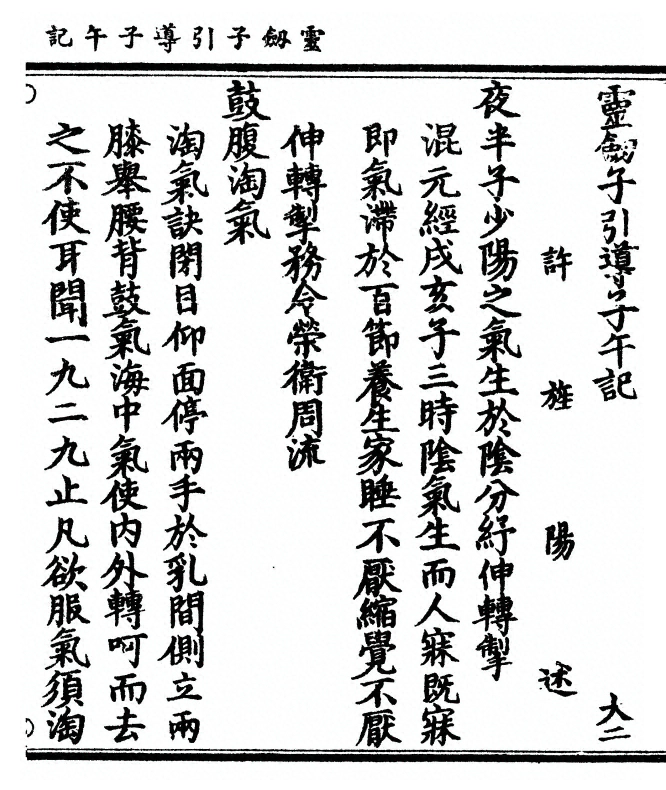 靈劔子引導子午記
靈劔子引導子午記 大二
許旌陽述
夜半子少陽之氣生於陰分紓伸轉掣
混元經戌亥子三時陰氣生而人寐既寐
即氣滯於百節養生家睡不厭縮覺不厭
伸轉掣務令榮衛周流
鼓腹淘氣
淘氣訣閉目仰面停兩手於乳間側立兩
膝舉腰背鼓氣海中氣使內外轉呵而去
之不使耳聞一九二九止凡欲服氣須淘